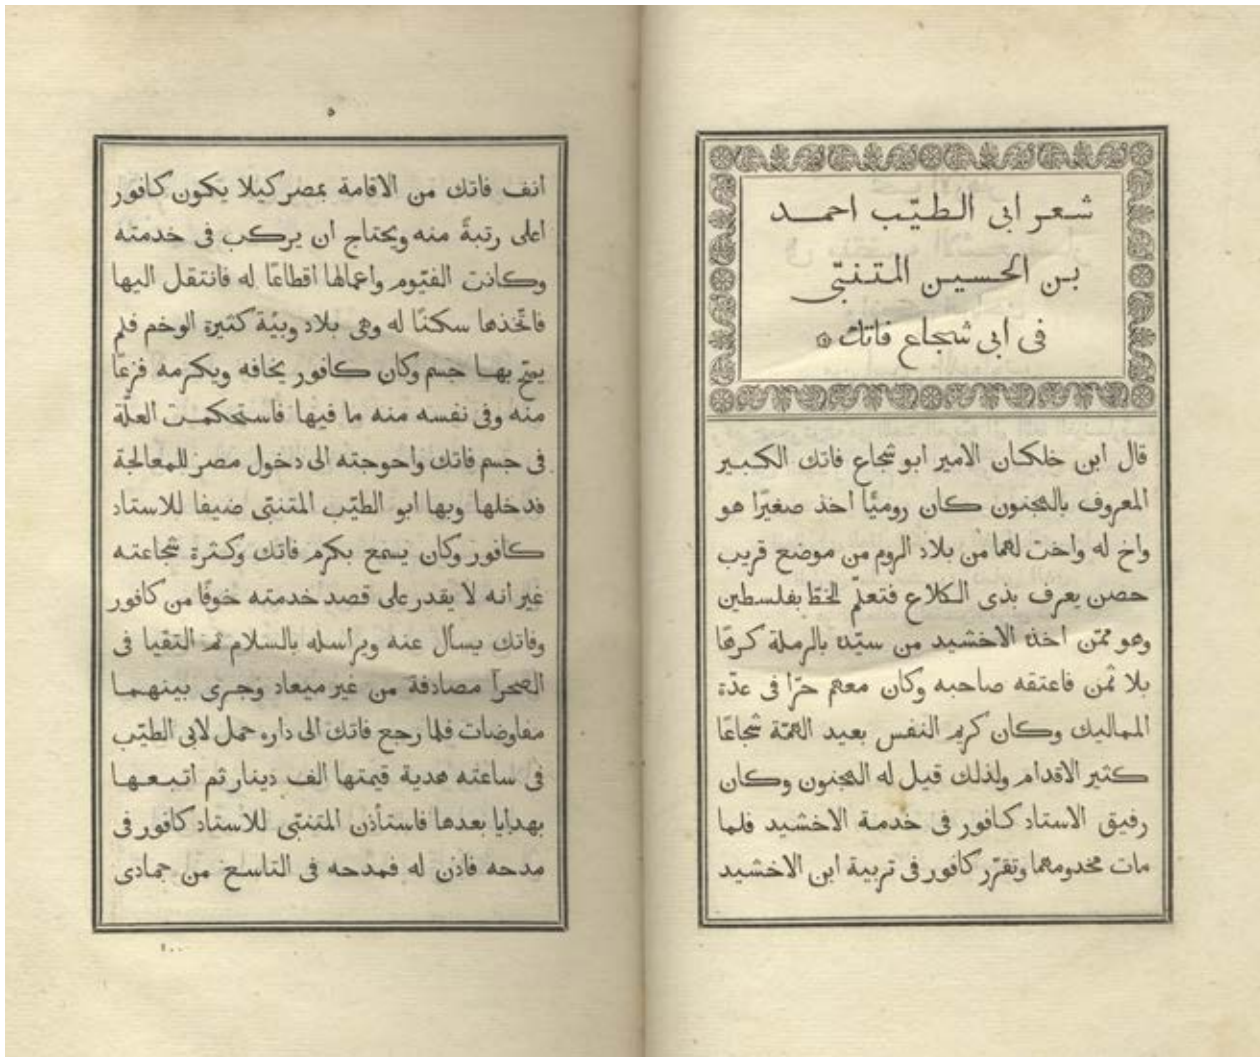 شعر ابى الطيّب احمد
بن الحسين المتنبّى
فى ابى شجاع فاتك
قال ابن خلكان الامير ابو شجاع فاتك الكبير
المعروف بالمجنون كان روميًا اخذ صغيرًا هو
واخ له واخت لهما من بلاد الروم من موضع قريب
حصن يعرف بذى الكلاع فتعلّم الخطّ بفلسطين
وهو ممّن اخذه الاخشيد من سيّده بالرملة كرهًا
بلا ثمن فاعتقه صاحبه وكان معهم حرّا فى عدّة
المماليك وكان كريم النفس بعيد الهمّة شجاعًا
كثير الاقدام ولذلك قيل له المجنون وكان
رفيق الاستاد كافور فى خدمة الاخشيد فلما
مات مخدومهما وتقرّر كافور فى تربية ابن الاخشيد
٥
انف فاتك من الاقامة بمصر كيلا يكون كافور
اعلى رتبةً منه ويحتاج ان يركب فى خدمته
وكانت الفيّوم واعمالها اقطاعًا له فانتقل اليها
فاتّخذها سكنًا له وهى بلاد وبيّة كثيرة الوخم فلم
يصّح بها جسم وكان كافور يخافه ويكرمه فزعًا
منه وفى نفسه منه ما فيها فاستحكمت العلّة
فى جسم فاتك واحوجته الى دخول مصر للمعالجة
فدخلها وبها ابو الطيّب المتنبّى ضيفا للاستاد
كافور وكان يسمع بكرم فاتك وكثرة شجاعته
غير انه لا يقدر على قصد خدمته خوفًا من كافور
وفاتك يسأل عنه ويراسله بالسلام ثم التقيا فى
الصحرآ مصادفة من غير ميعاد وجرى بينهما
مفاوضات فلما رجع فاتك الى داره حمل لابى الطيّب
فى ساعته هدية قيمتها الف دينار ثم اتبعها
بهدايا بعدها فاستأذن المتنبّى للاستاد كافور فى
مدحه فاذن له فمدحه فى التاسع من جمادى